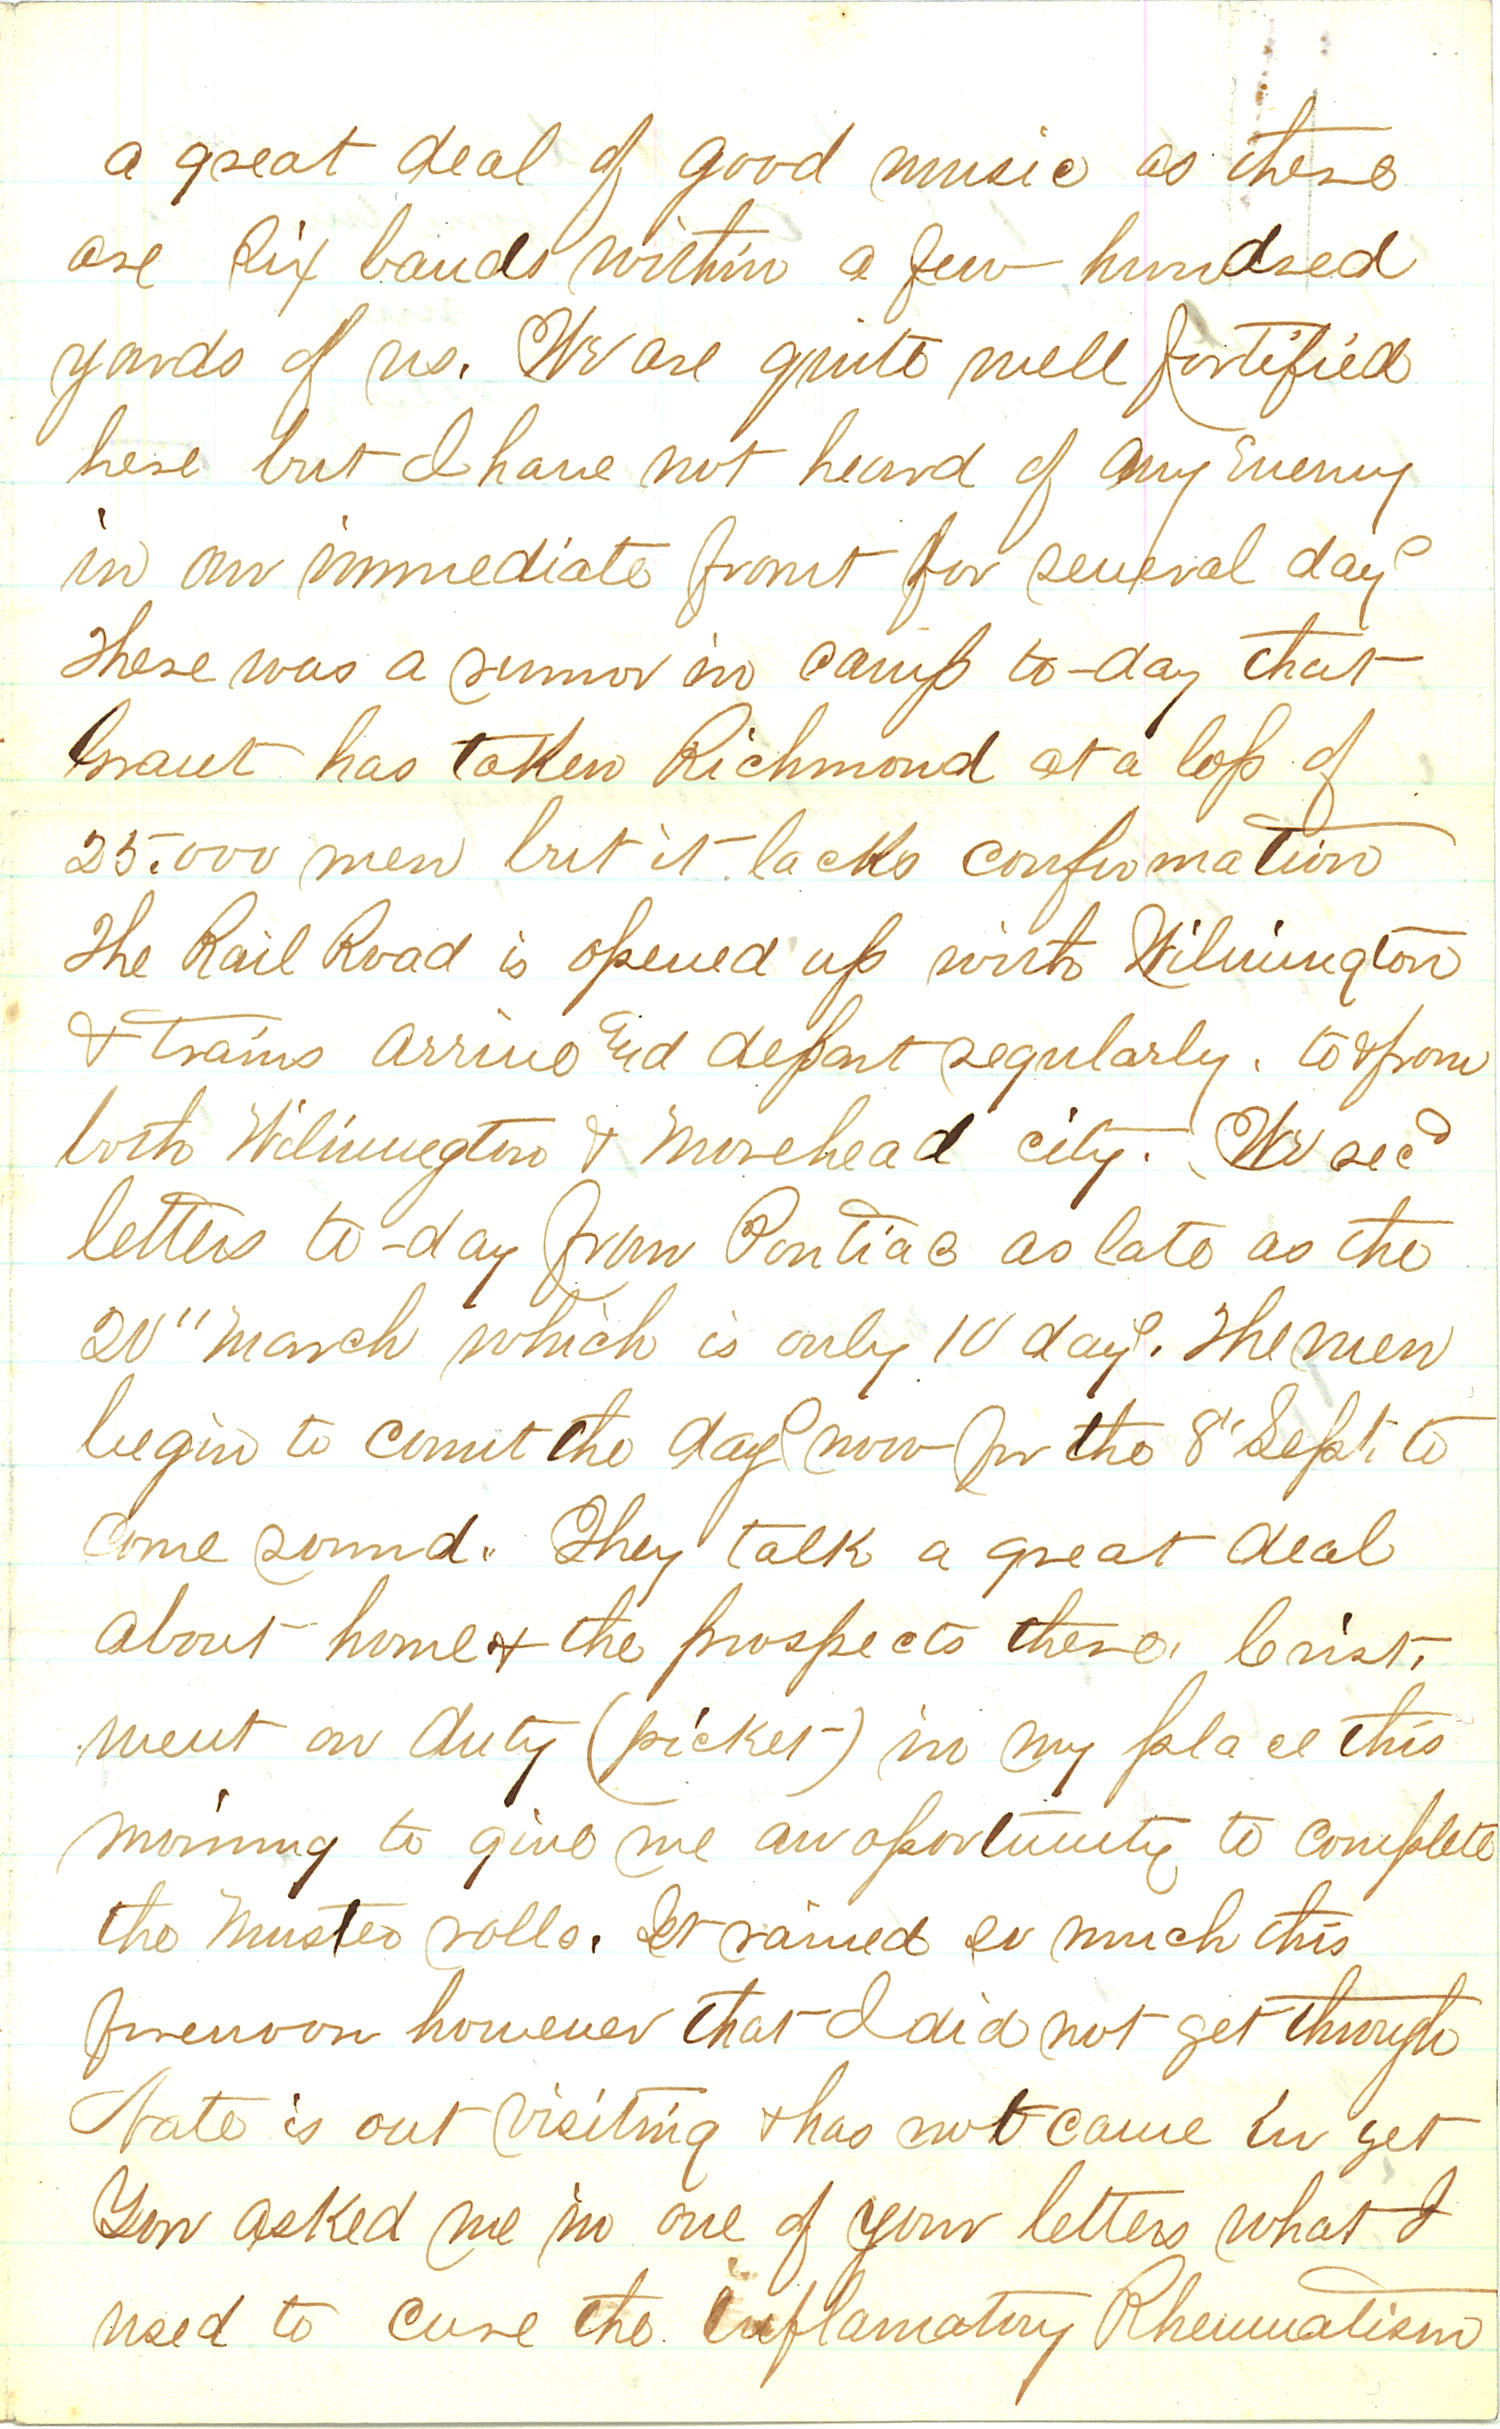 a great deal of good music as there
are six bands within a few hundred
yards of us. We are quite well fortified
here but I have not heard of any Enemy
in our immediate front for several days
There was a rumor in camp to-day that
Grant has taken Richmond at a loss of
25.000 men but it lacks confirmation
The Rail Road is opened up with Wilmington
& trains arrive and depart regularly. to & from
both Wilmington & Morehead city. We recd
letters to-day from Pontiac as late as the
20" March which is only 10 days. The men
begin to count the days now for the 8" Sept. to
come round. They talk a great deal
about home & the prospects there. Crist.
went on duty (picket) in my place this
morning to give me an oportunity to complete
the Muster rolls. It rained so much this
forenoon however that I did not get through
Nate is out visiting & has not came in yet
You asked me in one of your letters what I
used to cure the Inflamatory Rheumatism